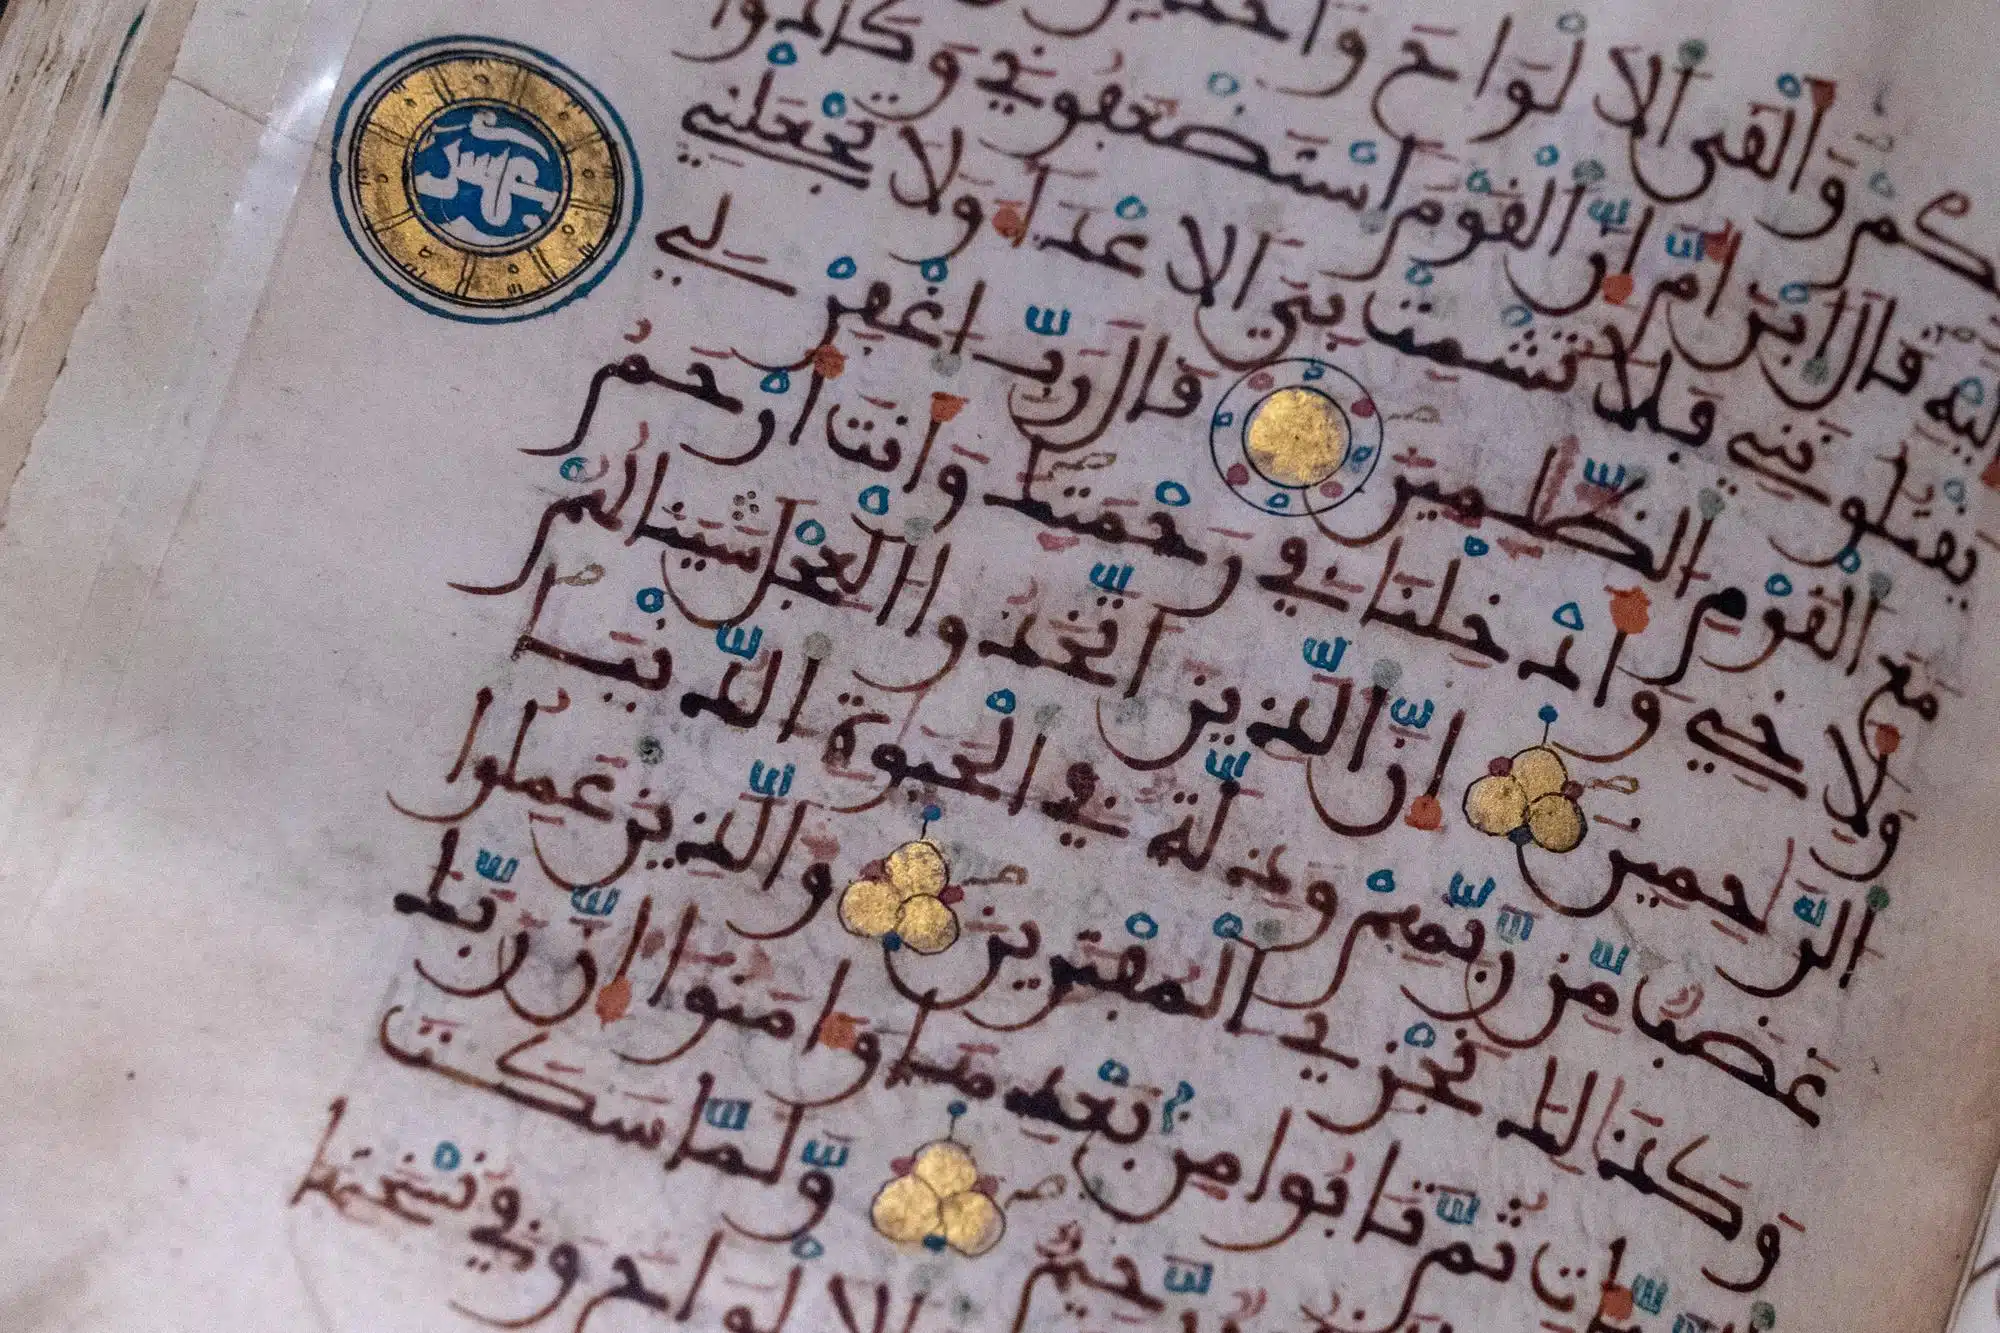 كُمْ وَأَلْقَى الَالْوَاحَ وَأَخَذَ
إِلَيْهِ قَالَ ابْنَ أُمَّ إِنَّ الْقَوْمَ اسْتَضْعَفُونِي وَكَادُوا
يَقْتُلُونَنِي فَلَا تُشْمِتْ بِيَ الَاعْدَاءَ وَلَا تَجْعَلْنِي
مَعَ الْقَوْمِ الظَّلِمِينَ قَالَ رَبِّ اغْفِرْ لِي
وَلِأَخِي وَأَدْخِلْنَا فِي رَحْمَتِكَ وَأَنتَ أَرْحَمُ
الرَّحِمِينَ إِنَّ الَّذِينَ اتَّخَذُوا الْعِجْلَ سَيَنَالُهُمْ
غَضَبٌ مِّن رَّبِّهِمْ وَذِلَّةٌ فِي الْحَيَوةِ الدُّنْيَا
وَكَذَلِكَ نَجْزِي الْمُفْتَرِينَ وَالَّذِينَ عَمِلُوا
ثُمَّ تَابُوا مِن بَعْدِهَا وَءَامَنُوا إِنَّ رَبَّكَ
رَّحِيمٌ وَلَمَّا سَكَتَ
الَالْوَاحَ وَفِي نُسْخَتِهَا